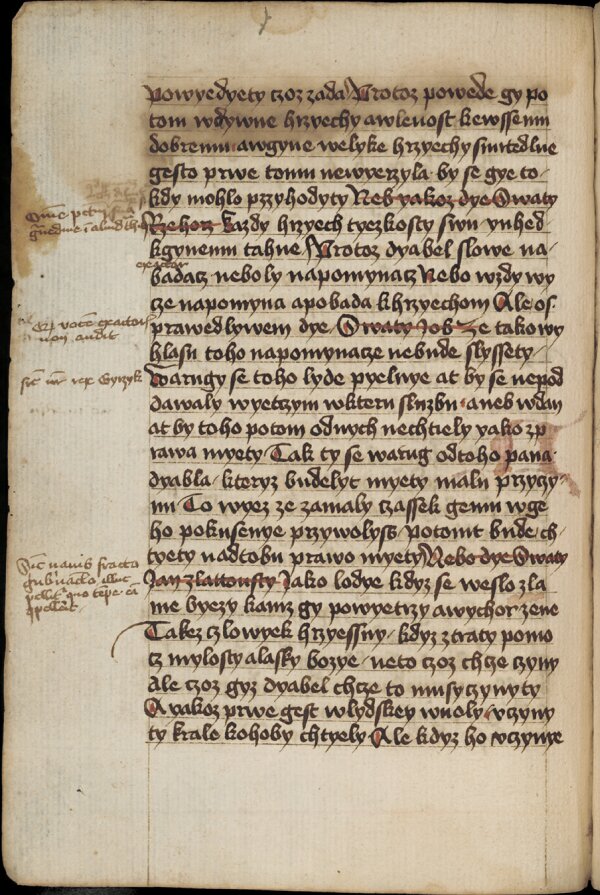 powyedyety czoz zada Protoz powede gy po
tom wdywne hrzyechy awlenost kewssem
dobremu awgyne welyke hrzyechy smrtedlne
gesto prwe tomu newyerzyla by se gye to-
kdy mohlo przyhodyty Neb yakoz dye Swaty
Rzehorz kazdy hrzyech tyezkosty swu ynhed
kgynemu tahne Protoz dyabel slowe na-
exactor
badacz neboly napomynacz Nebo wzdy wy
cze napomyna apobada khrzyechom Ale os
prawedlywem dye Swaty Job ze takowy
hlasu toho napomynacze nebude slyssety
Warugy se toho lyde pyelnye at by se nepod
dawaly wyetczym wkteru sluzbu aneb wdan
at by toho potom odnych nechtiely yako zp
rawa myety Tak ty se warug odtoho pana
dyabla kteryz budelyt myety malu przyczy
nu To wyez ze zamaly czassek gemu wge
ho pokusenye przywolyss Potomt bude ch
tyety nadtobu prawo myety Nebo dye Swaty
Jan zlattousty Jako lodye kdyz se weslo zla
me byezy kamz gy powyetrzy awychor zene
Takez czlowyek hrzyessny kdyz ztraty pomo
cz mylosty alasky bozye neto czoz chcze czyny
Ale czoz gyz dyabel chcze to musy czynyty
A yakoz prwe gest wlydskey wuoly vczyny
ty krale kohoby chtyely Ale kdyz ho vczynye
vocem exactoris
non audit
Sic navis fracto
gubernaculo illuc
pellitur quo tempestas